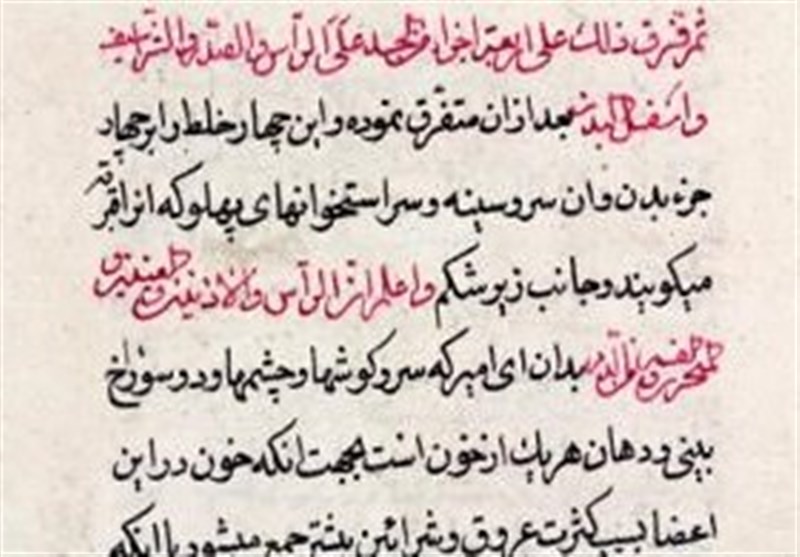 ثم فرق ذلك على اربعة اجزاء من الجسد على الرأس والصدر والشراسيف
واسفل البدن بعد ازان متفرق نموده و این چهار خلط را بر چهار
جزء بدن و ان سر و سینه و سر استخوانهای پهلو که انرا قرته
میگویند و جانب زیر شکم واعلم ان الرأس والاذنین والعینین و
المنخرین والفم من الدم بدان ای امیر که سر و گوشها و چشمها و دو سوراخ
بینی و دهان هر یك از خون است بجهت انکه خون در این
اعضا بسبب کثرت عروق و شرائین بیشتر جمع میشود با انکه